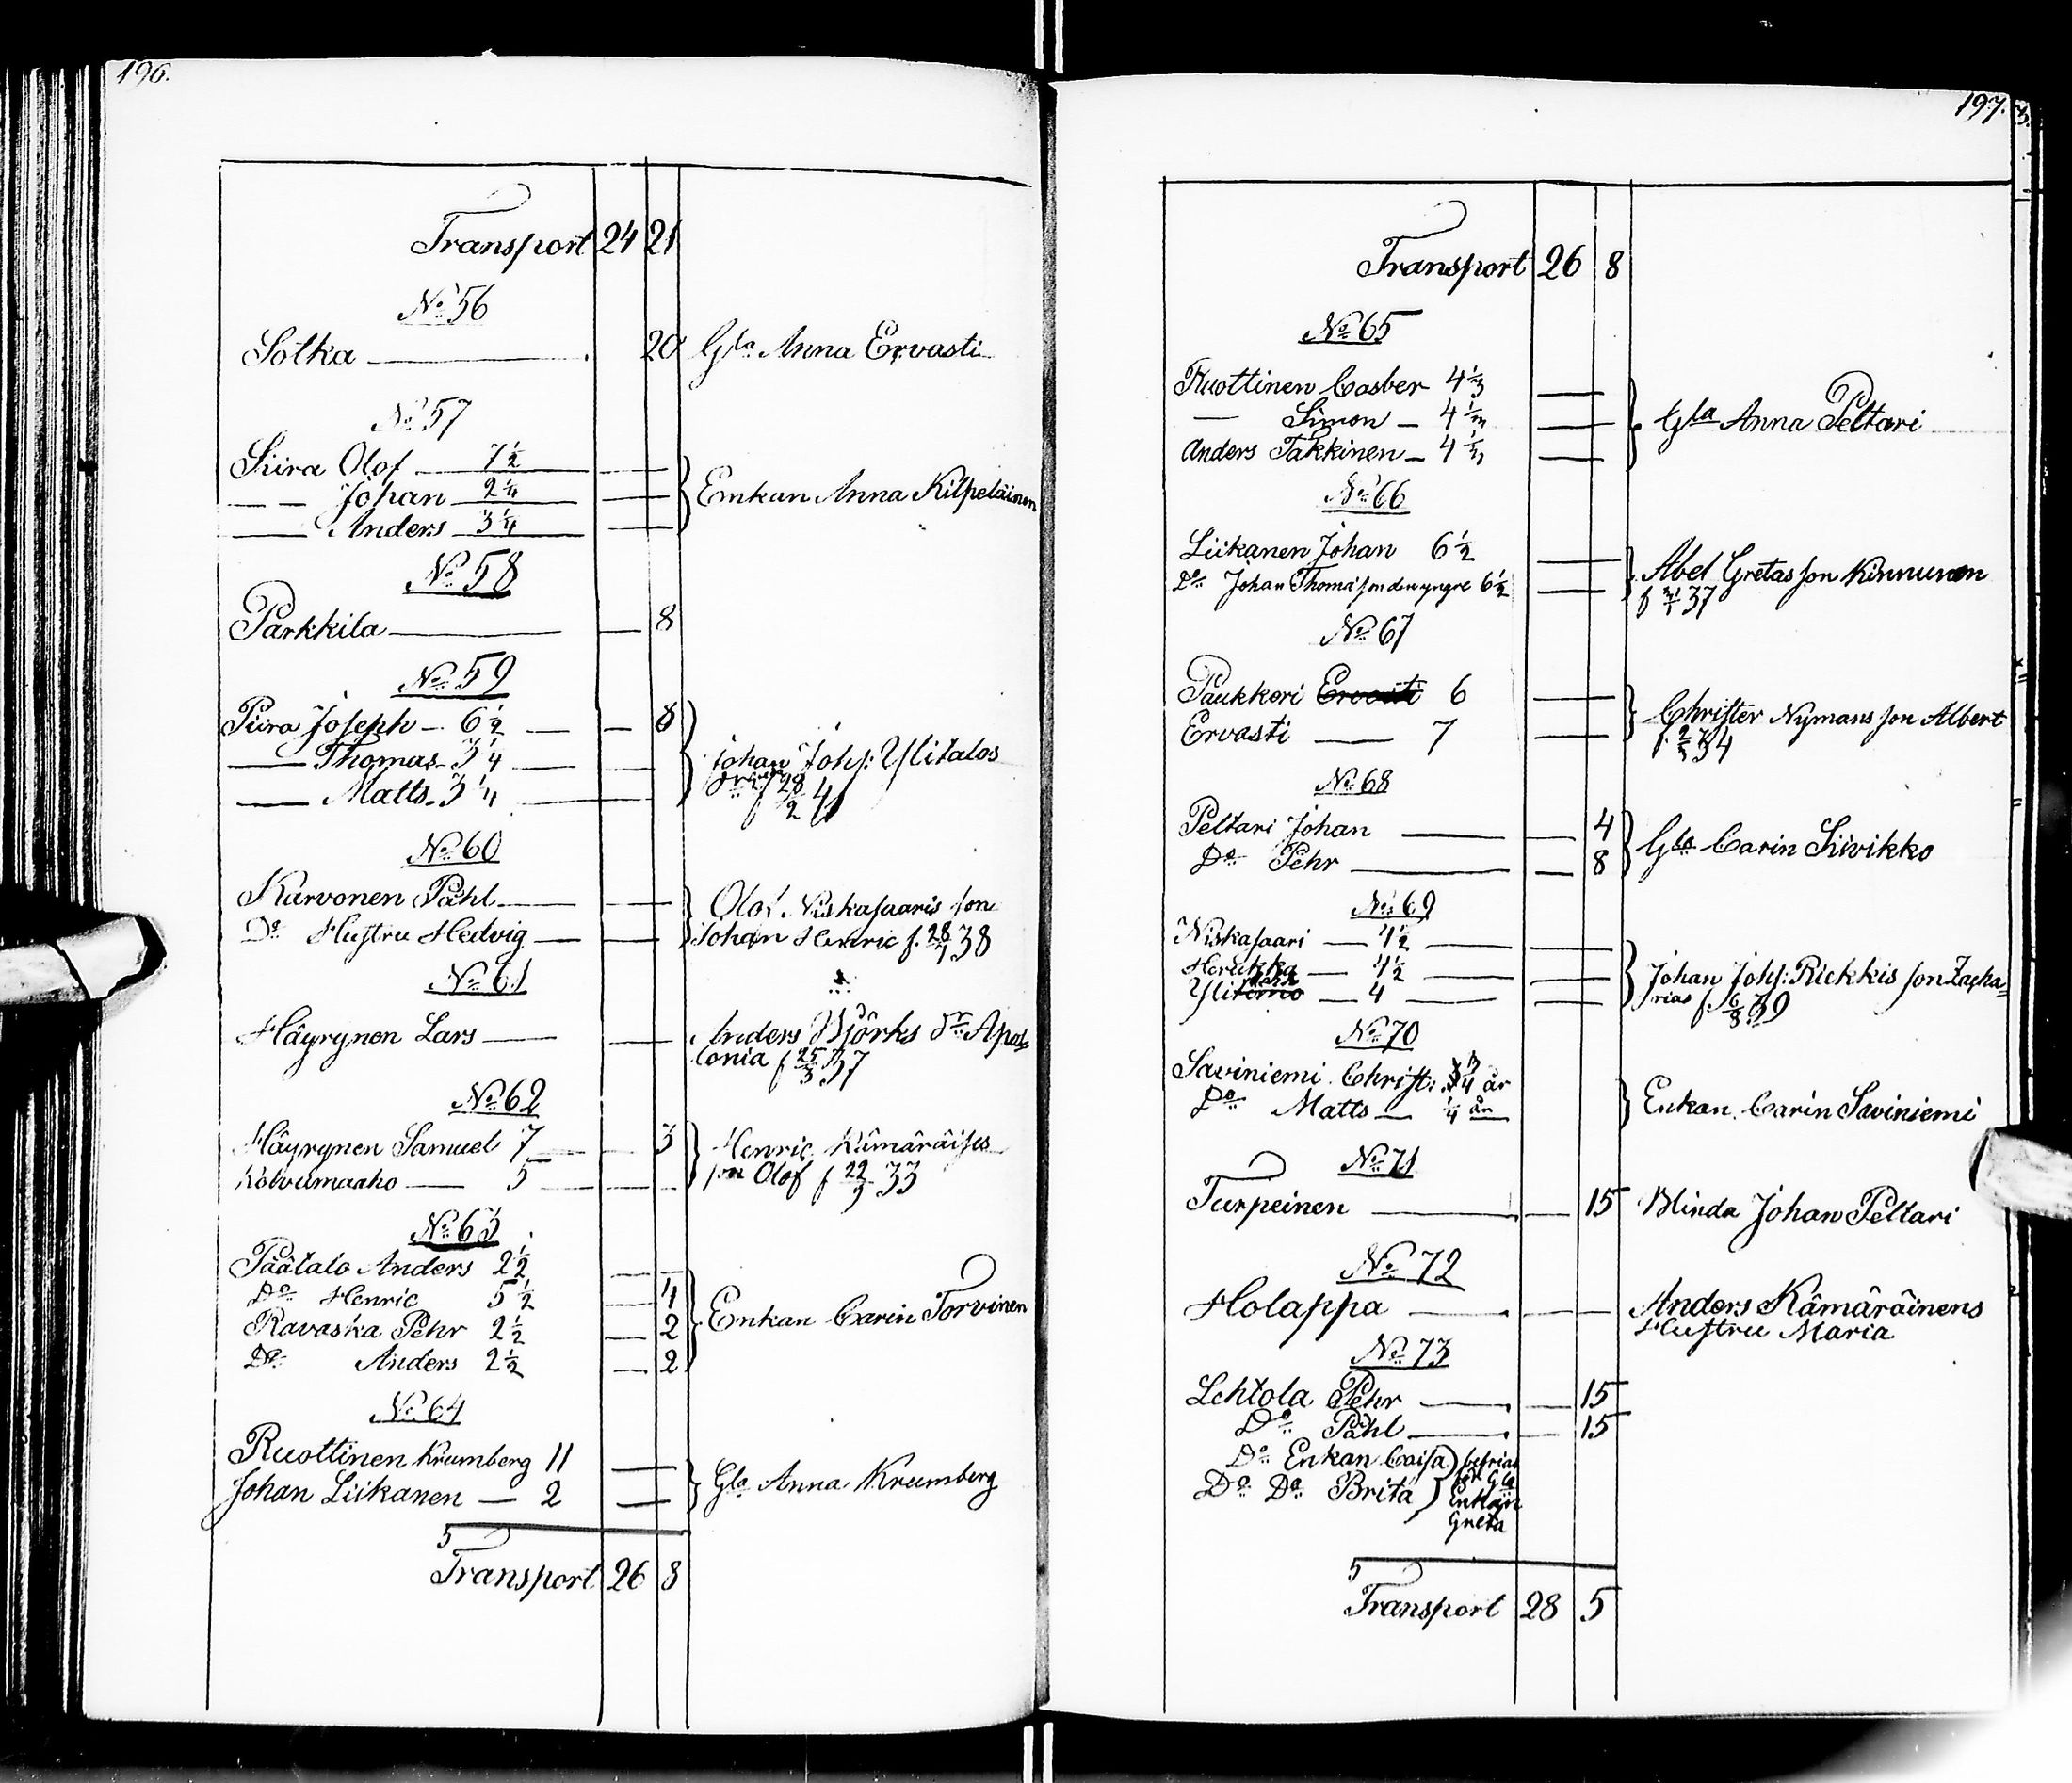 196.
Transport 24 21
No 56
Sotka 20 Gla Anna Ervasti
No 57
Siira Olof 7 1/2
Johan 2 1/4 Enkan Anna Kilpeläinen
Anders 3 1/4
No 58
Parkkila 8
No 59
Piira Joseph 6 1/2 8
Thomas 3 1/4 Johan Johs: Ylitalos
Matts 3 1/4 f 28/2 41
No 60
Karvonen Påhl Olof Niskasaaris son
Do Hustru Hedvig Johan Henric f. 28/1 38
No 61
Häyrynen Lars Anders Björks dr Apol
lonia f 25/3 37
No 62
Häyrynen Samuel 7 3 Henric Kämäräises
Koivumaaho 5 son Olof f 22/9 33
No 63
Päätalo Anders 2 1/2
Do Henric 5 1/2 4
Ravaska Pehr 2 1/2 2 Enkan Carin Torvinen
Do Anders 2 1/2 2
No 64
Ruottinen Krumberg 11
Johan Liikanen 2 Gla Anna Krumberg
5
Transport 26 8
197.
Transport 26 8
No 65
Ruottinen Casber 4 1/3
Simon 4 1/3 Gla Anna Peltari
Anders Takkinen 4 1/3
No 66
Liikanen Johan 6 1/2 Abel Gretas son Kinnunen
Do Johan Thomas son den yngre 6 1/2 f 37
No 67
Paukkeri Ervasti 6 Christer Nymans son Albert
Ervasti 7 f. 34
No 68
Peltari Johan 4
Do Pehr 8 Gla Carin Siivikko
No 69
Niskasaari 4 1/2
Herukka 4 1/2 Johan Johs: Riekkis son Zacha=
4 rias f. 6/8 39
No 70
Saviniemi Christ: 3/4 år
Do Matts 1/4 år Enkan Carin Saviniemi
No 71
Turpeinen 15 Blinda Johan Peltari
No 72
Holappa Anders Kämäräinens
Hustru Maria
No 73
Lehtola Pehr 15
Do Påhl 15
Do Enkan Caisa befrias
Do Do Brita för Gla
Enkan
Greta
5
Transport 28 5